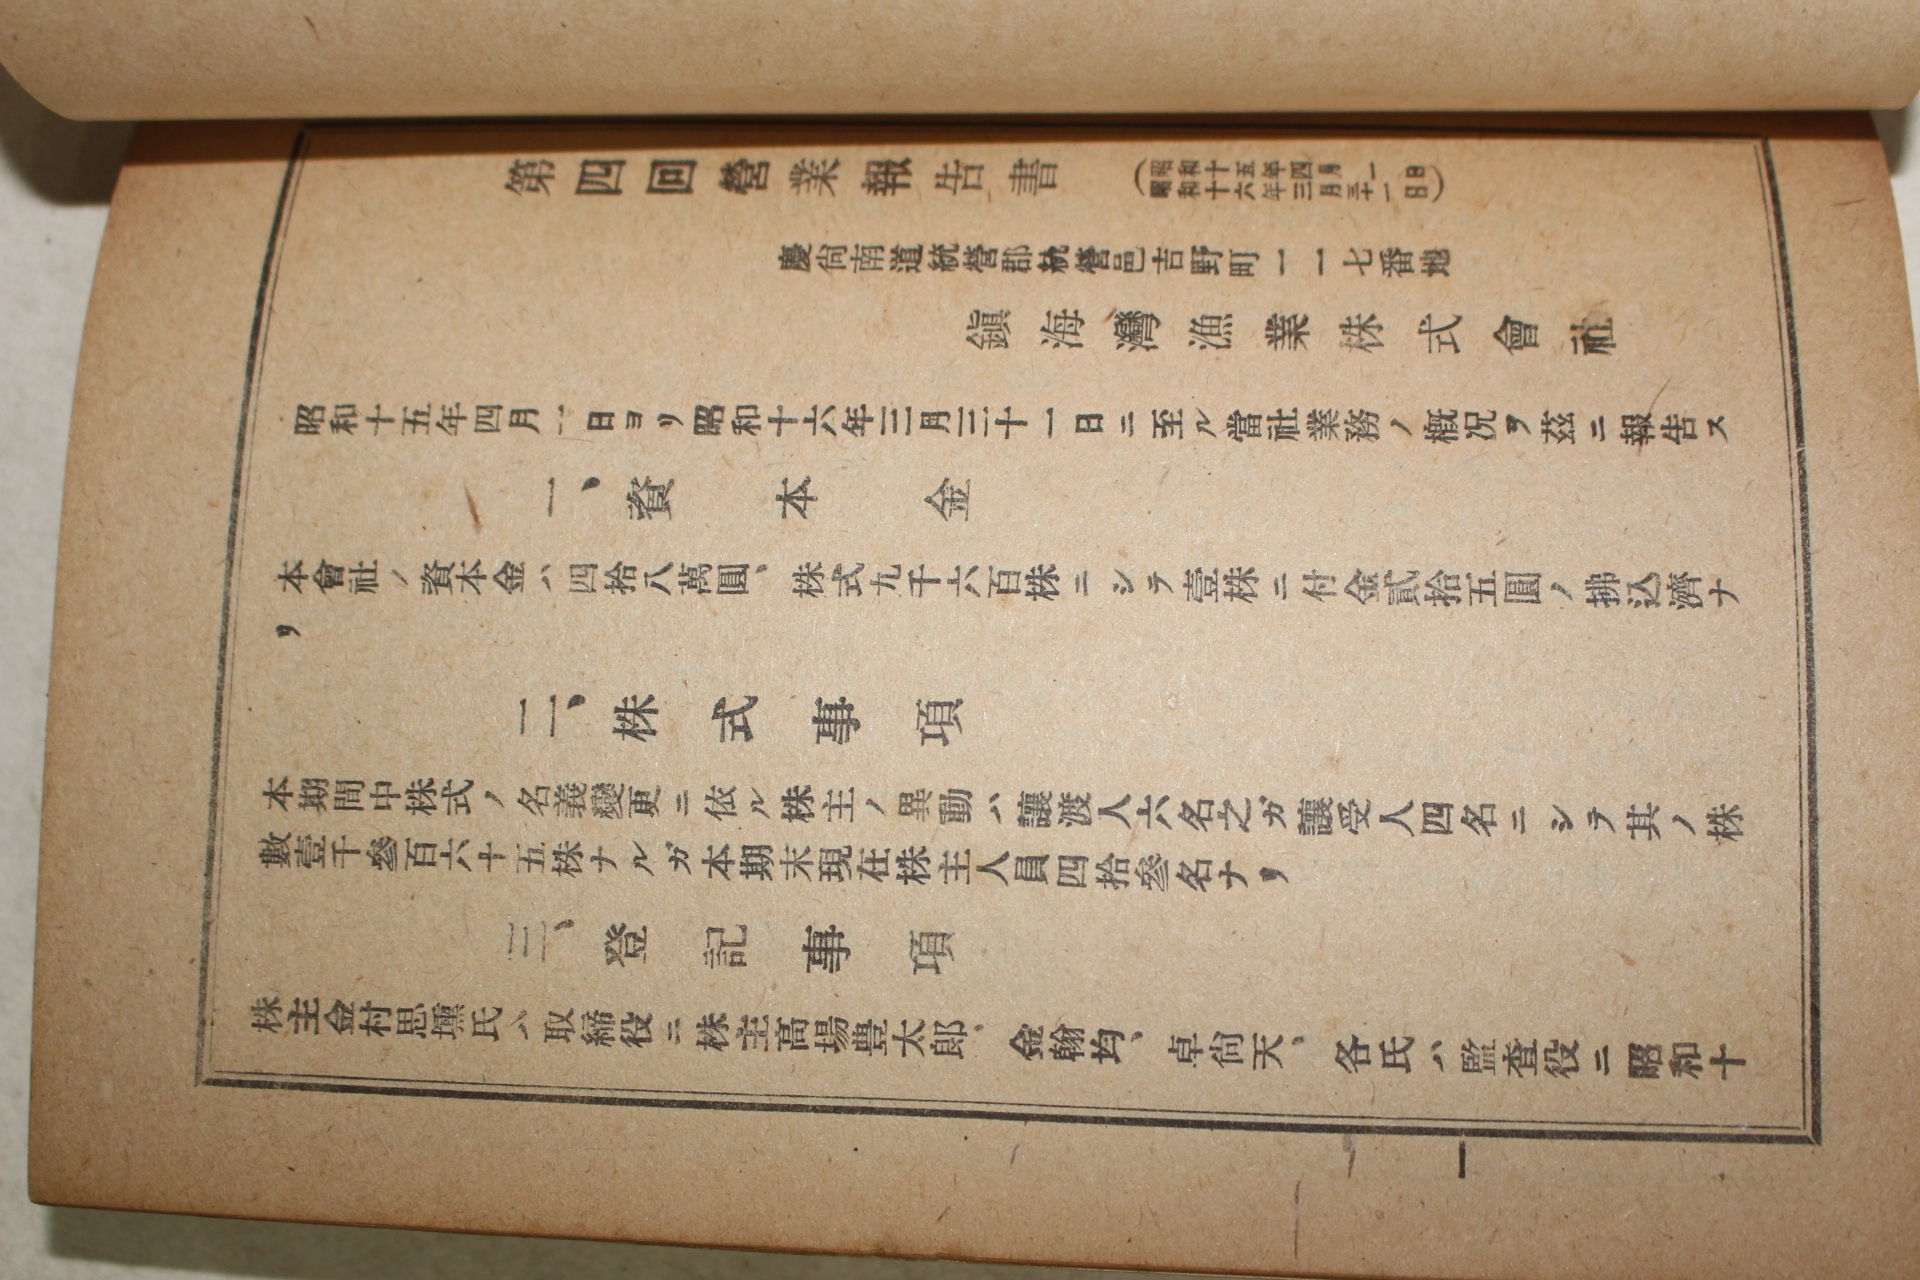 第四回營業報告書
(昭和十五年四月一日
昭和十六年三月三十一日)
慶尙南道統營郡統營邑吉野町一一七番地
鎭海灣漁業株式會社
昭和十五年四月一日ヨリ昭和十六年三月三十一日ニ至ル當社業務ノ槪况ヲ茲ニ報告ス
一、資本金
本會社ノ資本金ハ四拾八萬圓、株式九千六百株ニシテ壹株ニ付金貳拾五圓ノ拂込濟ナ
リ
二、株式事項
本期間中株式ノ名義變更ニ依ル株主ノ異動ハ讓渡人六名之ガ讓受人四名ニシテ其ノ株
數壹千參百六十五株ナルガ本期末現在株主人員四拾參名ナリ
三、登記事項
株主金村思壎氏ハ取締役ニ株主高場豊太郎、金翰均、卓尙天、各氏ハ監査役ニ昭和十
一